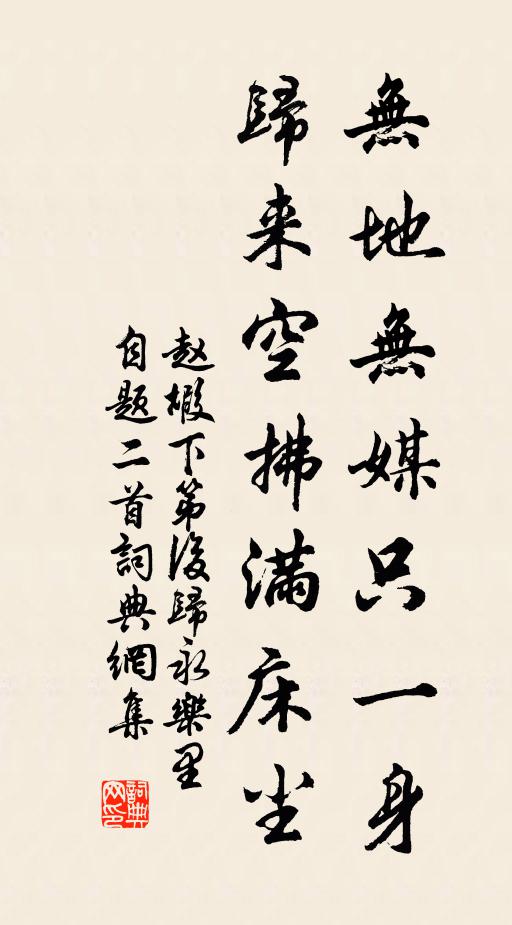 無地無媒只一身
歸来空拂滿床尘
赵嘏下第後歸永樂里
自题二首詞典網集
詞典网印